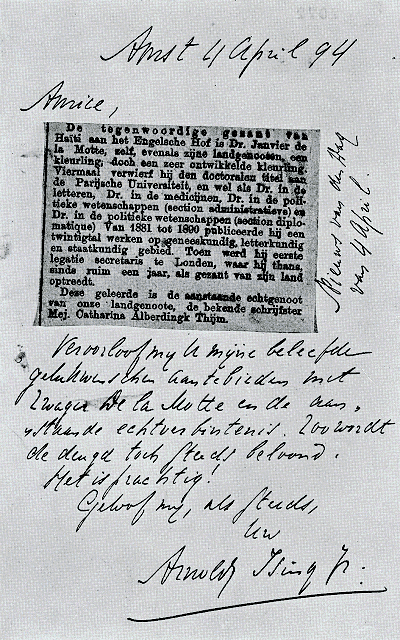 Amst 4 April 94
Amice,
De tegenwoordige gezant van
Haïti aan het Engelsche Hof is Dr. Janvier de
la Motte, zelf, evenals zijne landgenooten, een
kleurling, doch een zeer ontwikkelde kleurling.
Viermaal verwierf hij den doctoralen titel aan
de Parijsche Universiteit, en wel als Dr. in de
letteren, Dr. in de medicijnen, Dr. in de poli-
tieke wetenschappen (section administrative) en
Dr. in de politieke wetenschappen (section diplo-
matique) Van 1881 tot 1890 publiceerde hij een
twintigtal werken op geneeskundig, letterkundig
en staatkundig gebied. Toen werd hij eerste
legatie secretaris te Londen, waar hij thans,
sinds ruim een jaar, als gezant van zijn land
optreedt.
Deze geleerde is de aanstaande echtgenoot
van onze landgenoote, de bekende schrijfster
Mej. Catharina Alberdingk Thijm.
Nieuws van den Dag
van 4 April.
Veroorloof mij U mijne beleefde
gelukwenschen aantebieden met
Zwager De la Motte en de aan-
staande echtverbintenis. Zoo wordt
de deugd toch steeds beloond.
Het is prachtig!
Geloof mij, als steeds,
Uw
Arnold Ising Jr.